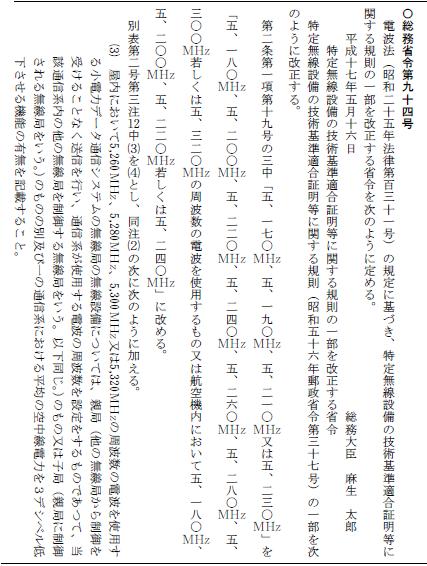 ○総務省令第九十四号
電波法（昭和二十五年法律第百三十一号）の規定に基づき、特定無線設備の技術基準適合証明等に
関する規則の一部を改正する省令を次のように定める。
平成十七年五月十六日
総務大臣　麻生　太郎
特定無線設備の技術基準適合証明等に関する規則の一部を改正する省令
特定無線設備の技術基準適合証明等に関する規則（昭和五十六年郵政省令第三十七号）の一部を次
のように改正する。
第二条第一項第十九号の三中「五、一七〇MHz、五、一九〇MHz、五、二一〇MHz又は五、二三〇MHz」を
「五、一八〇MHz、五、二〇〇MHz、五、二二〇MHz、五、二四〇MHz、五、二六〇MHz、五、二八〇MHz、五、
三〇〇MHz若しくは五、三二〇MHzの周波数の電波を使用するもの又は航空機内において五、一八〇MHz、
五、二〇〇MHz、五、二二〇MHz若しくは五、二四〇MHz」に改める。
別表第二号第三注12中(3)を(4)とし、同注(2)の次に次のように加える。
(3)　屋内において5,260MHz、5,280MHz、5,300MHz又は5,320MHzの周波数の電波を使用す
る小電力データ通信システムの無線局の無線設備については、親局（他の無線局から制御を
受けることなく送信を行い、通信系が使用する電波の周波数を設定をするものであつて、当
該通信系内の他の無線局を制御する無線局をいう。以下同じ。）のもの又は子局（親局に制御
される無線局をいう。）のものの別及び一の通信系における平均の空中線電力を３デシベル低
下させる機能の有無を記載すること。